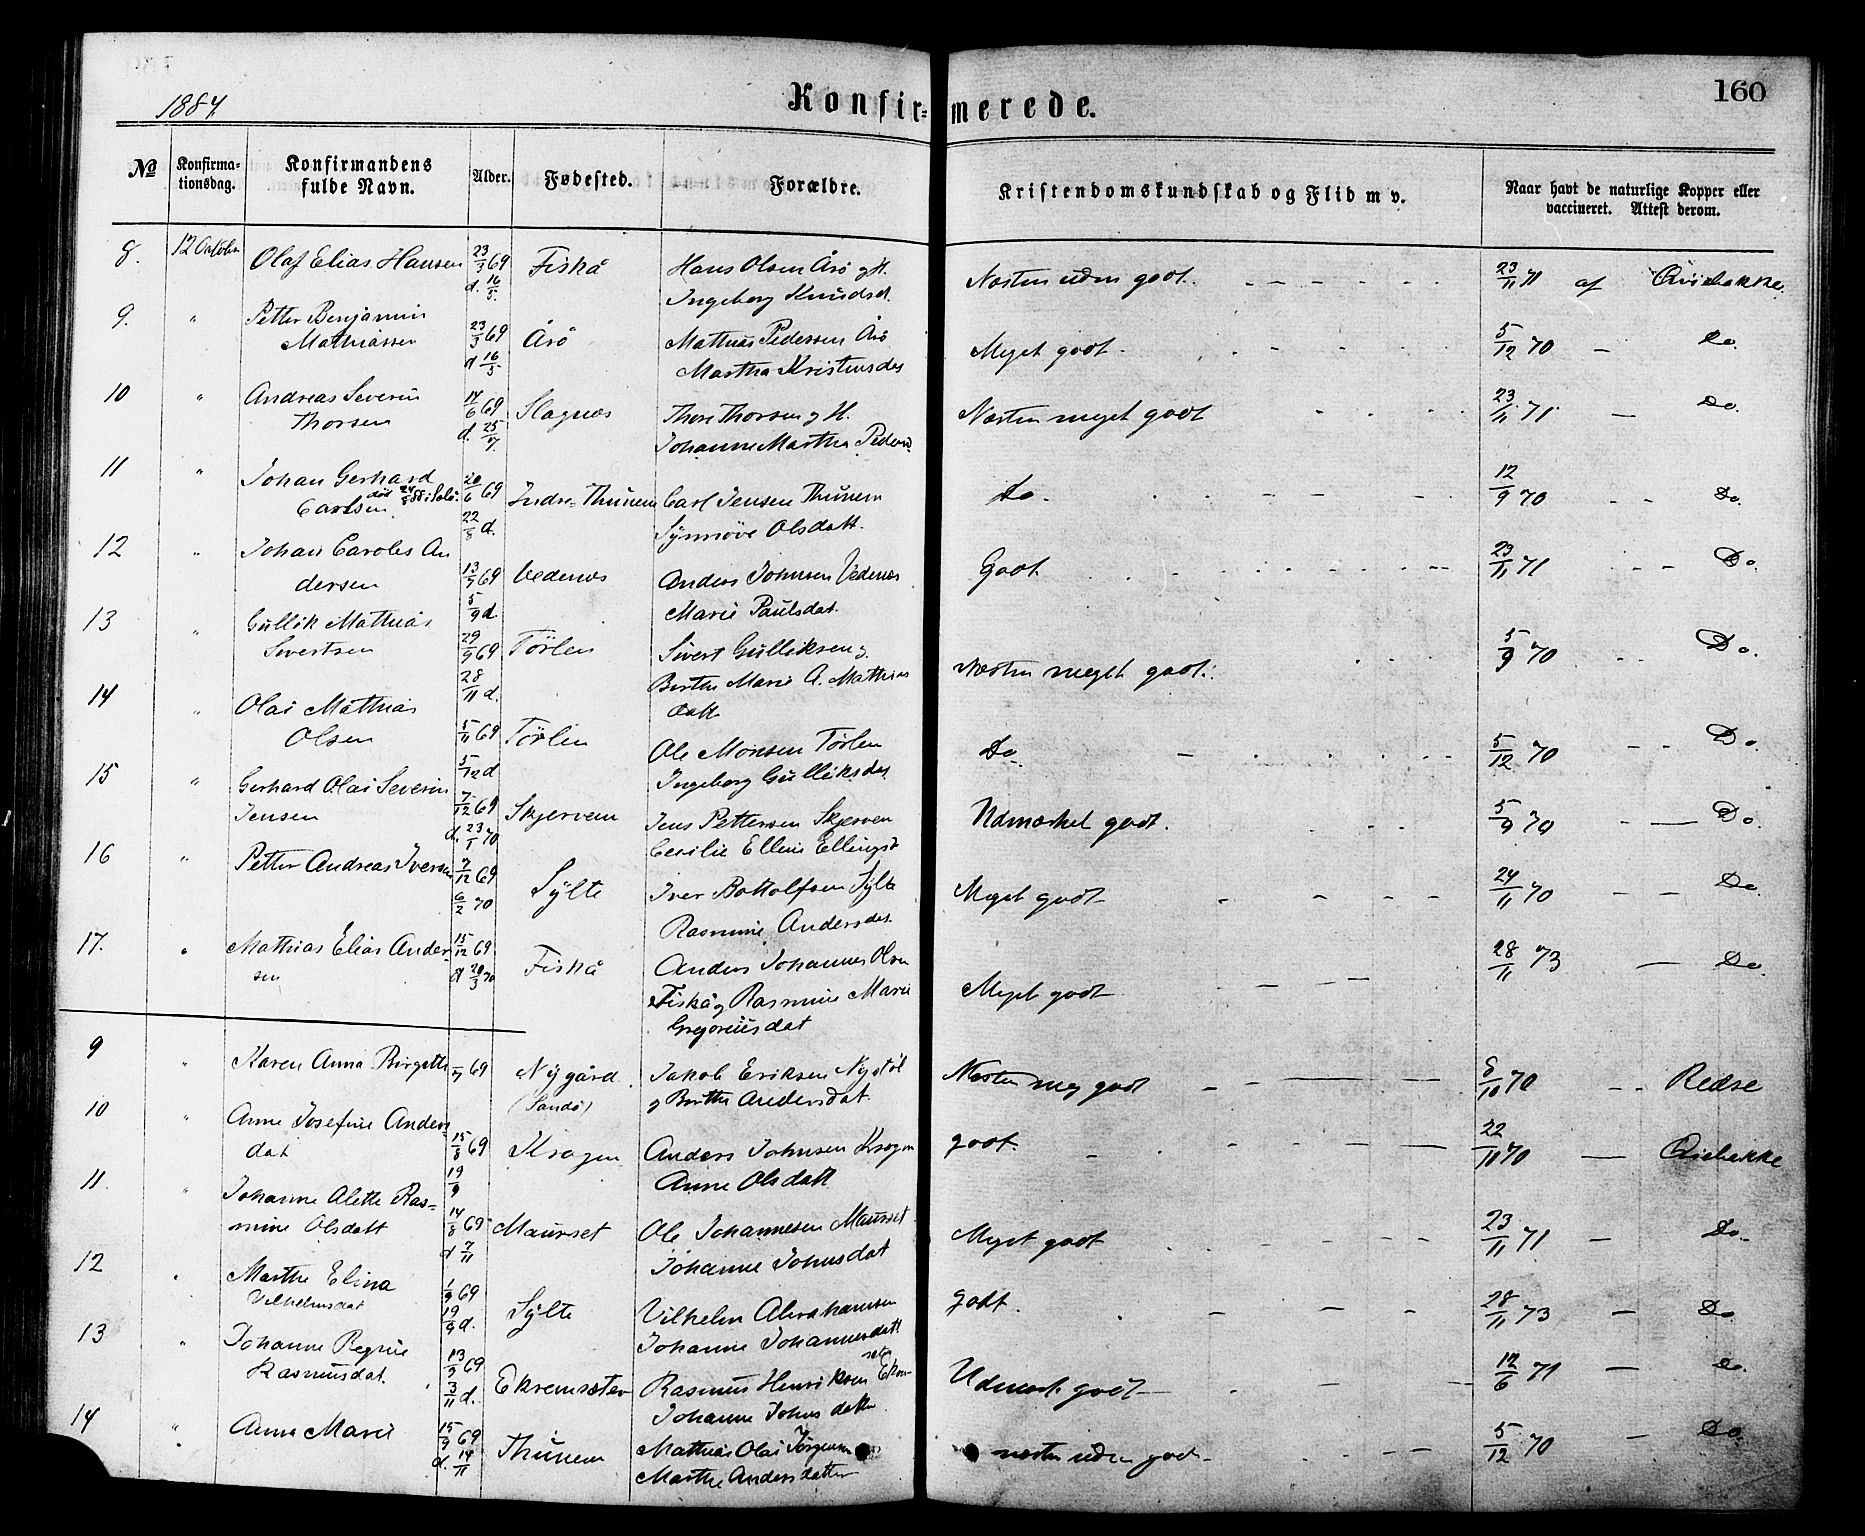 1884.
Konfirmerede.
160
№ Konfirmationsdag. Konfirmandens fulde Navn. Alder. Fødested. Forældre. Kristendomskundskab og Flid m v. Naar havt de naturlige Kopper eller vaccineret. Attest derom.
8. 12 October Olaf Elias Hansen 23/3 69 Fiskå Hans Olsen Årö g H. Næsten uden godt. 23/11 71 af
d. 16/5. Ingeborg Knudsd.
9. " Petter Benjamin
Mathiassen 23/3 69 Årö Mathias Pedersen Årö Meget godt. 5/12 70 — Do.
d 16/5. Martha Kristensdat
10 " Andreas Severin
Thorsen 17/6 69 Slagnæs Thore Thorsen g H. Næsten meget godt 23/11 71 — Do.
d. 25/7. Johanne Martha Pedersd
11 " Johan Gerhard
Carlsen 20/6 69 Indre-Thunem Carl Jensen Thunem Do. 12/9 70 — Do.
22/8 d. Synnöve Olsdatt.
12 " Johan Caroles An
dersen 13/7 69 Vedenæs Anders Johnsen Vedenæs Godt. 23/11 71 — Do.
5/9 d. Marie Paulsdat.
13 " Gullik Mathias
Sivertsen 29/9 69 Törlen Sivert Gulliksen g. Næsten meget godt. 5/9 70 Do.
28/11 d. Berthe Marie A. Mathias
datt
14 " Olai Mathias
Olsen 5/11 69 Törlen Ole Monsen Törlen Do. 5/12 70 — Do.
5/12 d Ingeborg Gulliksdat
15 " Gerhard Olai Severin
Jensen 7/12 69 Skjervem Jens Pettersen Skjerven Udmærket godt. 5/9 70 — Do.
d. 23/1 70 Cecilie Elline Ellingsd
16 " Petter Andreas Iversen 7/12 69 Sylte Iver Bottolfsen Sylte Meget godt 24/11 70 — Do
6/2 70 Rasmine Andersdat.
17. " Mathias Elias Ander-
sen 15/12 69 Fiskå Anders Johannes Olsen Meget godt 28/11 73 — Do.
d 20/3 70 Fiskå g Rasmine Marie
Gregoriusdat
9 " Karen Anna Birgitte /7 69 Nygård. Jakob Eriksen Nystöl Næsten meg godt 8/10 70 Redse
(Sandö) g Berthe Andersdat
10 " Anne Josefine Anders-
dat 15/8 69 Kragen Anders Johnsen Kragen godt. 22/11 70 —
19/9 Anne Olsdatt
11. " Johanne Alette Ras-
mine Olsdatt 14/8 69 Maurset Ole Johannesen Maurset Meget godt 23/11 71 — Do.
d 7/11 Johanne Johnsdat
12 " Marthe Elina
Vilhelmsdat 1/9 69 Sylte Vilhelm Abrahamsen godt. 28/11 73 — Do
19/9 d. Johanne Johannesdatt
13 " Johanne Regine
Rasmusdat. 13/9 69 Ekremsæter Rasmus Henriksen Ekrem-
sæter Udmærk. godt 12/6 71 — Do.
3/11 d. Johanne Johns datter
14 " Anne Marie 15/9 69 Thunem Mathias Olai Jörgensen næsten uden godt 5/12 70 — Do.
d. 14/11 Marthe Andersdatter